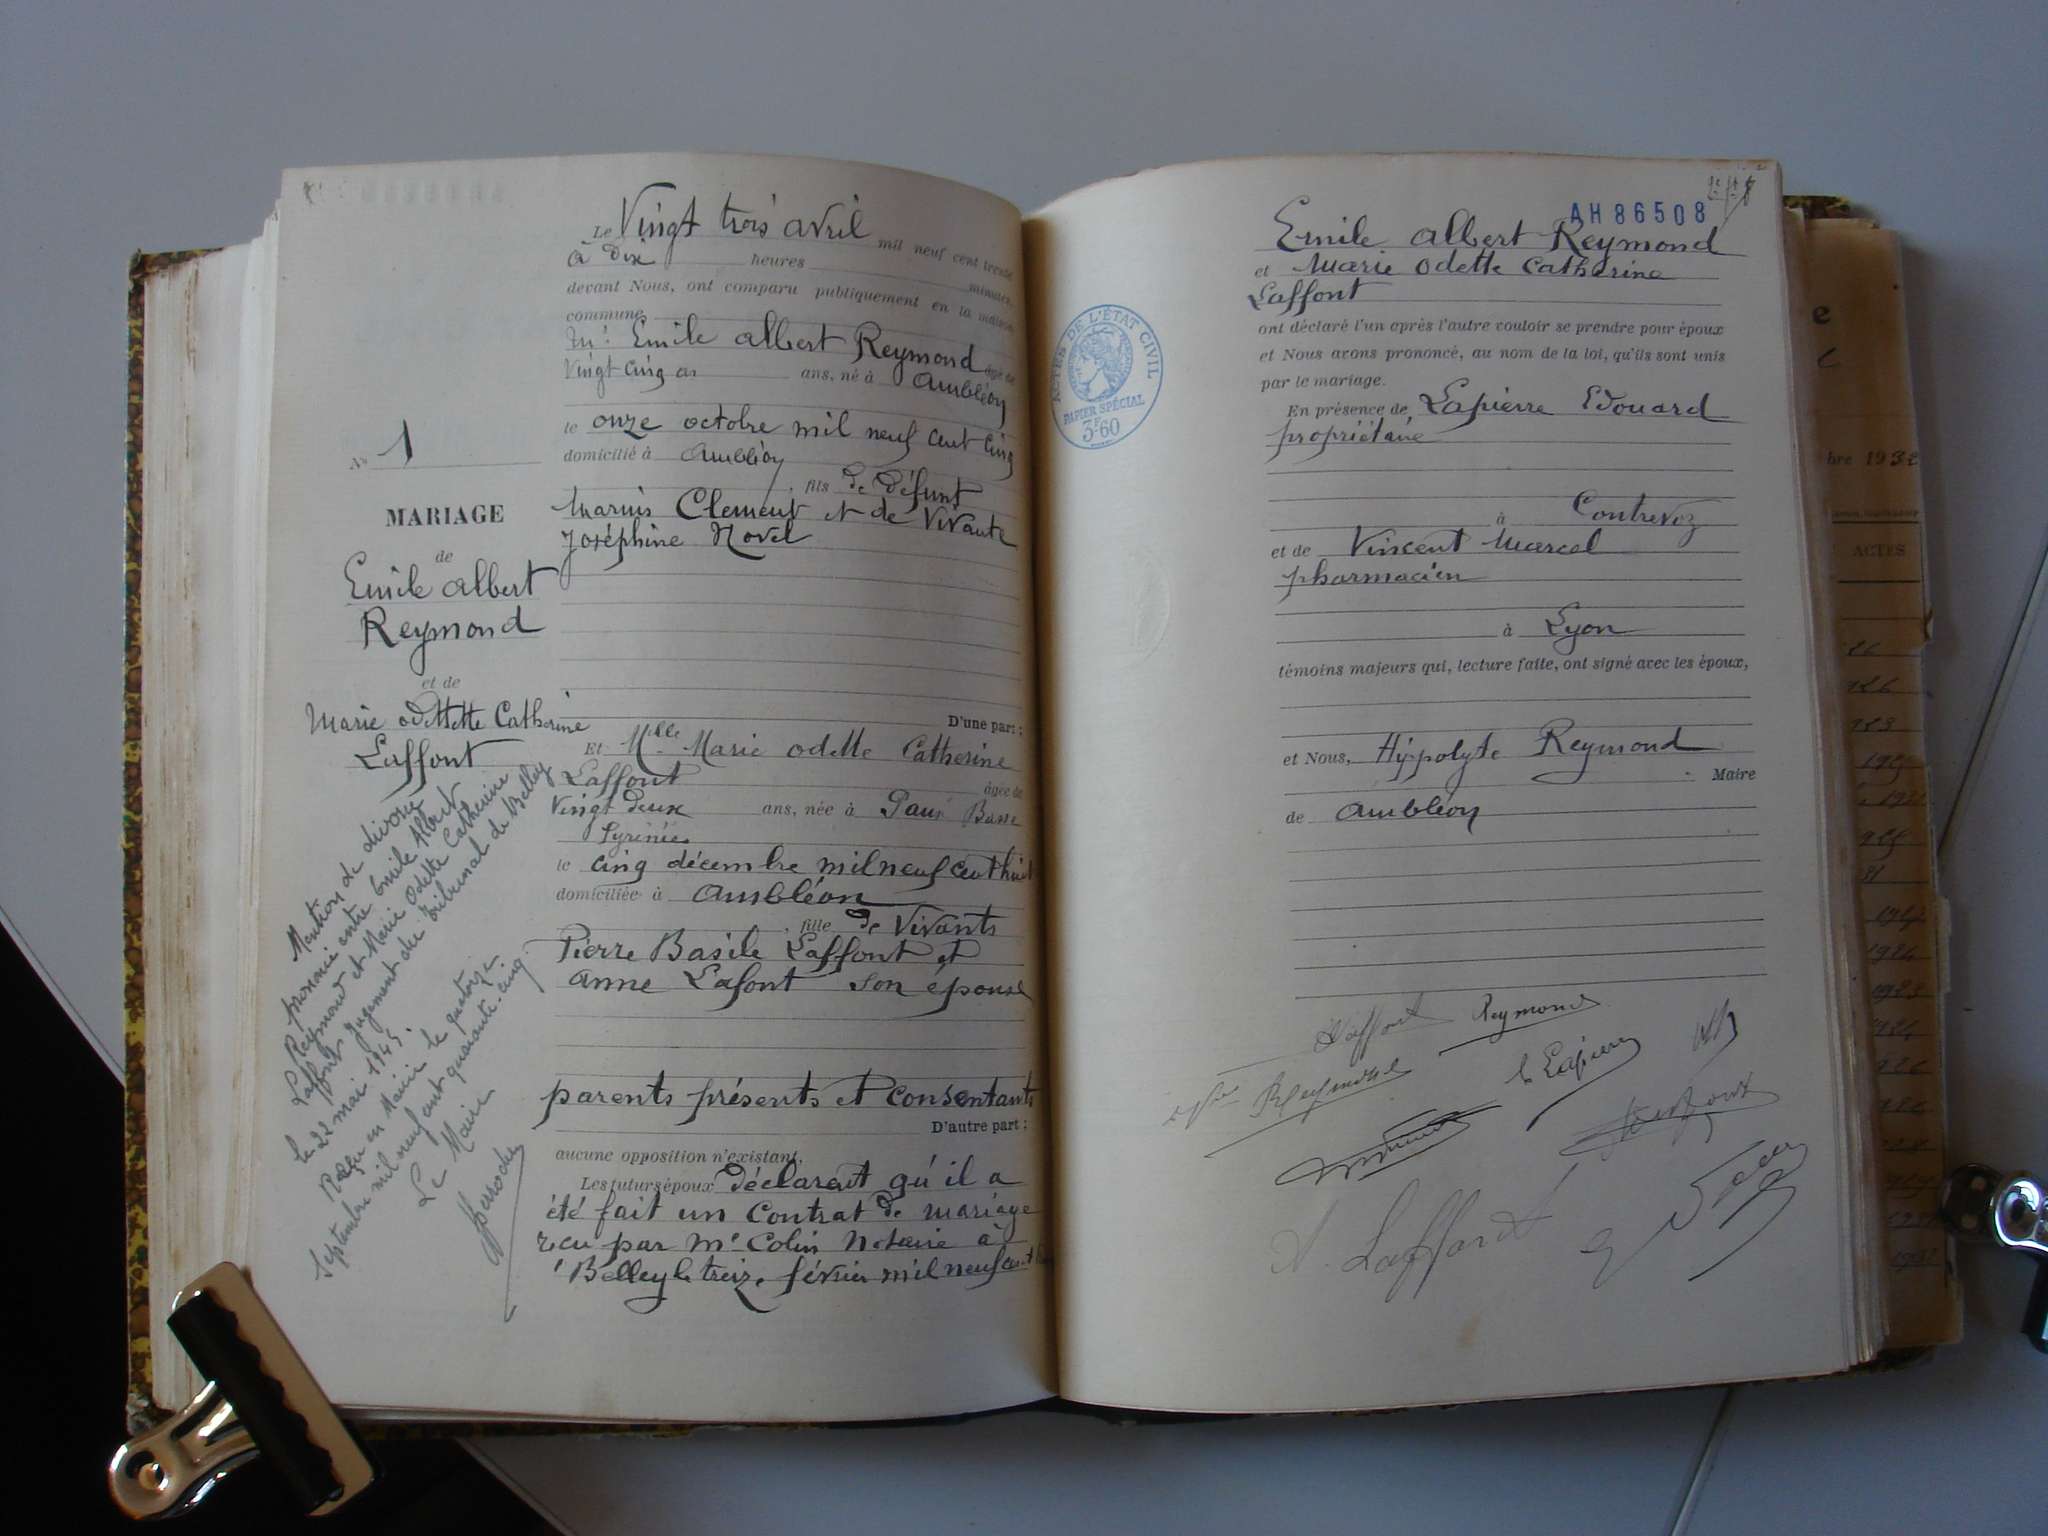 Le Vingt trois avril mil neuf cent trente
à Dix heures minutes,
devant Nous, ont comparu publiquement en la maison
commune
Mr Emile Albert Reymond âgé de
Vingt cinq an ans, né à Ambléon
le onze octobre mil neuf cent cinq
domicilié à Ambléon
fils de défunt
Marius Clement et de Vivante
Joséphine Novel
No 1
MARIAGE
de
Emile Albert
Reymond
et de
Marie Odettette Catherine
Laffont
D'une part ;
Et Melle Marie Odette Catherine
Laffont âgée de
Vingt deux ans, née à Pau Basse
Pyrénées
le cinq décembre mil neuf cent huit
domiciliée à Ambléon
fille de Vivants
Pierre Basile Laffont et
Anne Lafont son épouse
parents présents et consentants
D'autre part ;
aucune opposition n'existant.
Les futurs époux déclarent qu'il a
été fait un contrat de mariage
recu par Me Colin Notaire à
Belley le treize février mil neuf cent
Mention de divorce
prononcé entre Emile Albert
Reymond et Marie Odette Catherine
Laffont jugement du tribunal de Belley
le 22 mai 1945.
Reçu en Mairie le quatorze
Septembre mil neuf cent quarante-cinq.
Le Maire
AH 86508
Emile Albert Reymond
et Marie Odette Catherine
Laffont
ont déclaré l'un après l'autre vouloir se prendre pour époux
et Nous avons prononcé, au nom de la loi, qu'ils sont unis
par le mariage.
En présence de Lapierre Edouard
propriétaire
à Contrevoz
et de Vincent Marcel
pharmacien
à Lyon
témoins majeurs qui, lecture faite, ont signé avec les époux,
et Nous, Hippolyte Reymond
Maire
de Ambléon
Laffont Reymond
Reymond
E Lapierre
A. Laffont
ACTES DE L'ÉTAT CIVIL
PAPIER SPÉCIAL
3F60
bre 1932
ACTES